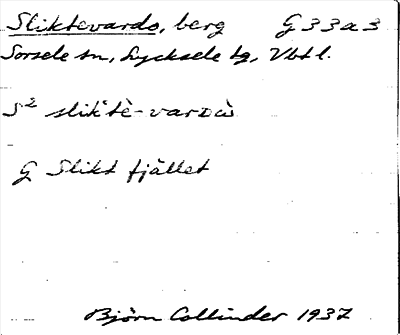 Sliktevardo, berg G 33 a 3
Sorsele sn, Lycksele tg, Vbtl.
S² slik̄tè-varDὼ
G Slikt fjället
Björn Collinder 1937